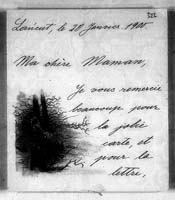 Lorient, le 28 Janvier 1900
Ma chère Maman,
Je vous remercie
beaucoup pour
la jolie
carte, et
pour la
lettre.